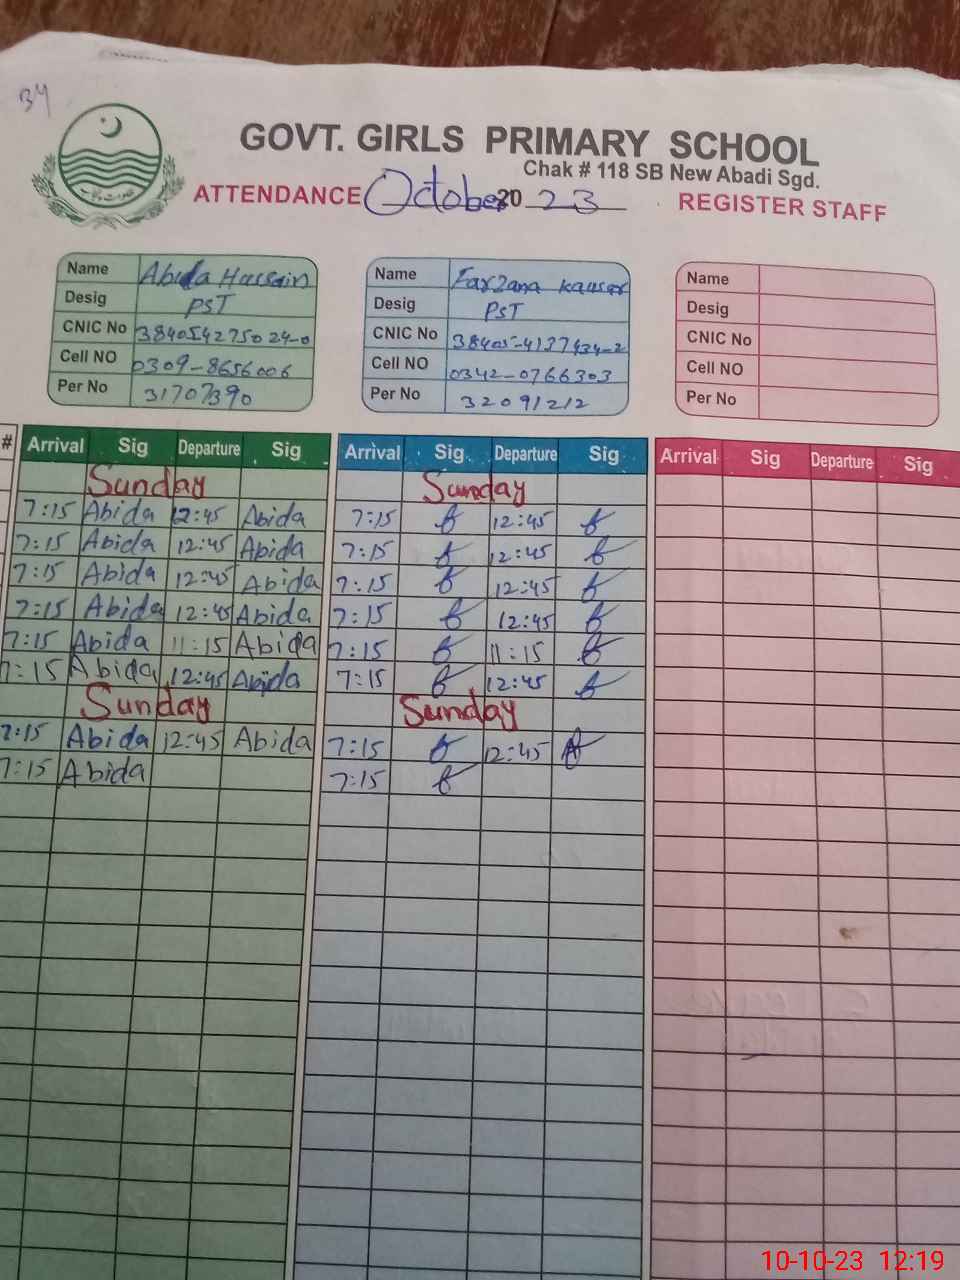 34
GOVT. GIRLS PRIMARY SCHOOL
Chak # 118 SB New Abadi Sgd.
ATTENDANCE October 2023 REGISTER STAFF
Name Abida Hussain Name Farzana kausar Name
Desig PST Desig PST Desig
CNIC No 3840542750 24-0 CNIC No 38405-4137434-2 CNIC No
Cell NO 0309-8656006 Cell NO 0342-0766303 Cell NO
Per No 31707390 Per No 32091212 Per No
# Arrival Sig Departure Sig Arrival Sig Departure Sig Arrival Sig Departure Sig
Sunday Sunday
7:15 Abida 12:45 Abida 7:15 12:45
7:15 Abida 12:45 Abida 7:15 12:45
7:15 Abida 12:45 Abida 7:15 12:45
7:15 Abida 12:45 Abida 7:15 12:45
7:15 Abida 11:15 Abida 7:15 11:15
7:15 Abida 12:45 Abida 7:15 12:45
Sunday Sunday
7:15 Abida 12:45 Abida 7:15 12:45
7:15 Abida 7:15
10-10-23 12:19